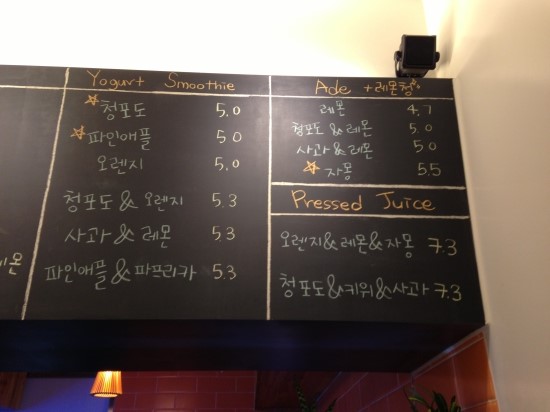 Yogurt Smoothie
☆청포도 5.0
☆파인애플 5.0
오렌지 5.0
청포도&오렌지 5.3
사과&레몬 5.3
파인애플&파프리카 5.3
Ade +레몬청
레몬 4.7
청포도&레몬 5.0
사과&레몬 5.0
☆자몽 5.5
Pressed Juice
오렌지&레몬&자몽 7.3
청포도&키위&사과 7.3
레몬